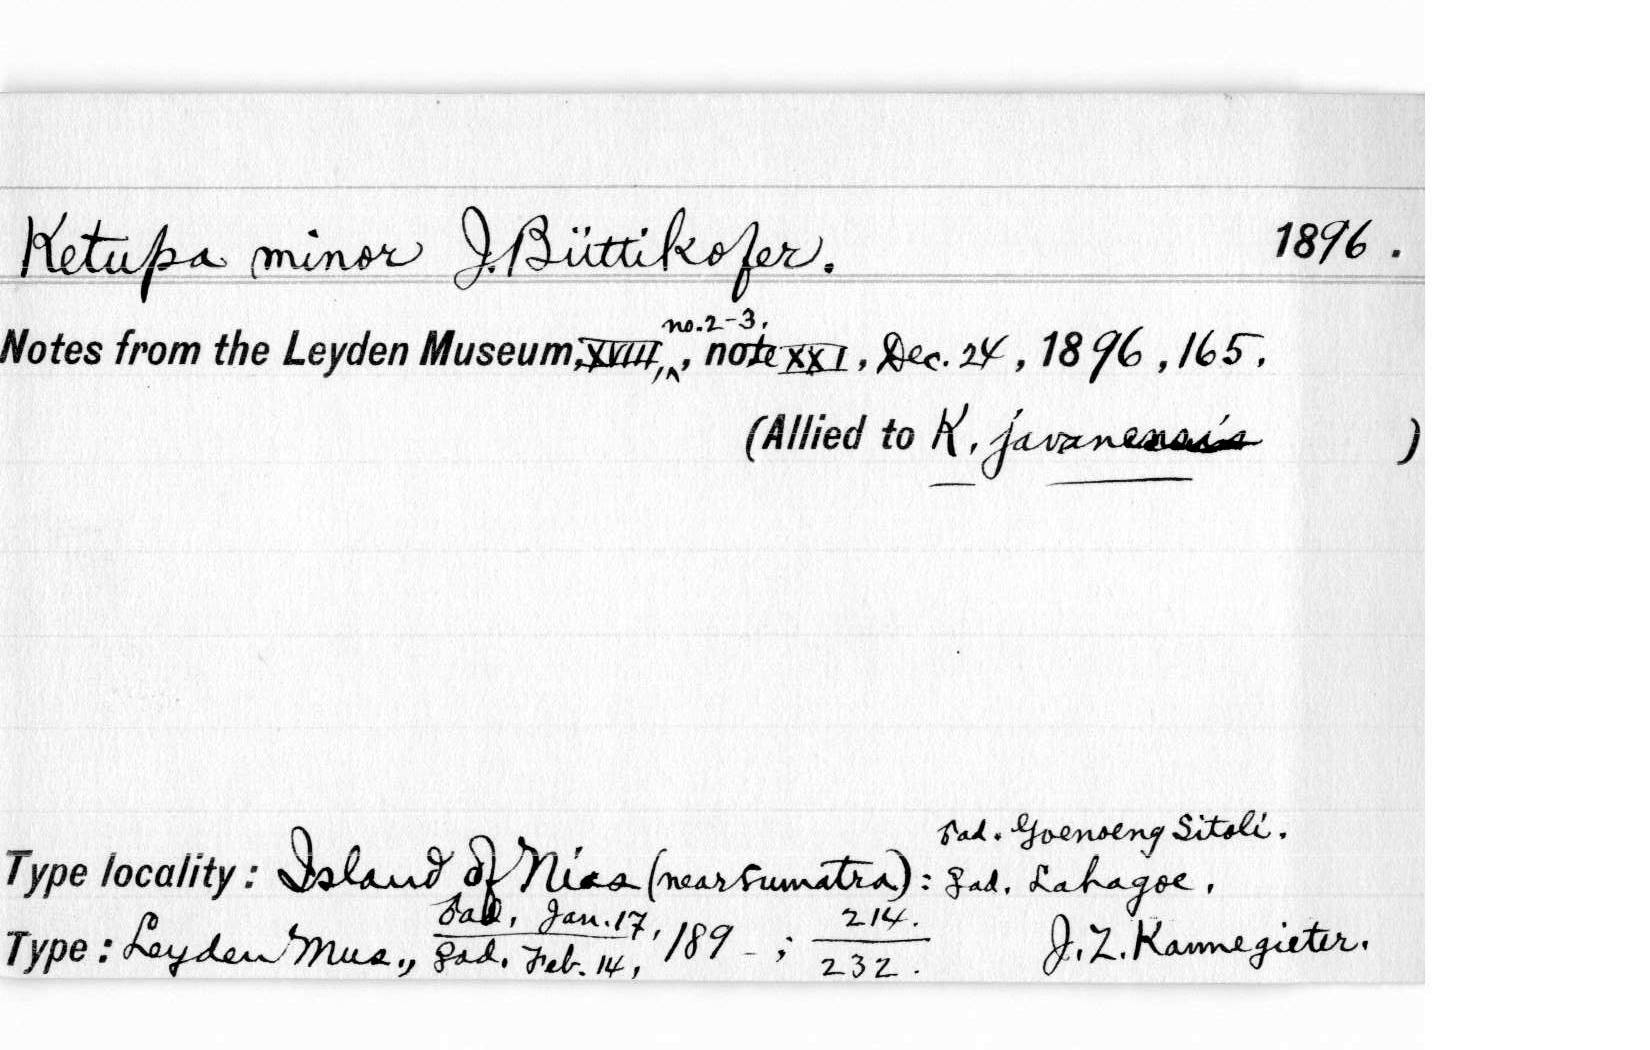 Ketupa minor J. Büttikofer. 1896.
no. 2-3,
Notes from the Leyden Museum, XVIII, , note XXI, Dec. 24, 1896, 165.
(Allied to K. javanensis )
♂ad. Goenoeng Sitoli.
Type locality: Island of Nias (near Sumatra): ♀ad. Lahagoe.
♂ad, Jan. 17, 214.
Type: Leyden Mus., 189-; J.Z. Kannegieter.
♀ad. Feb. 14, 232.